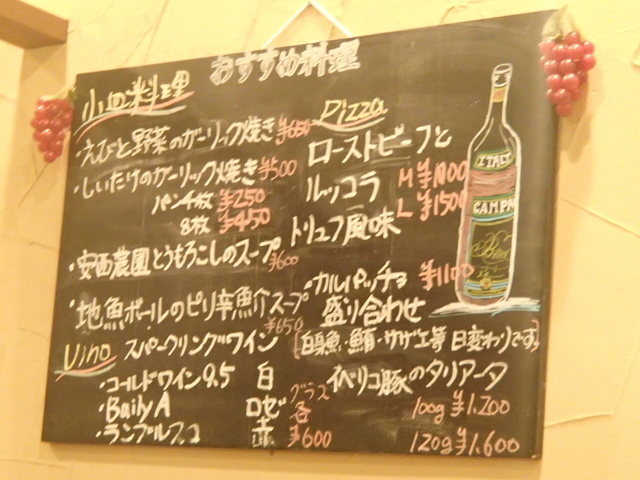 おすすめ料理
小皿料理
・えびと野菜のガーリック焼き ¥650
・しいたけのガーリック焼き ¥500
パン4枚 ¥250
8枚 ¥450
・安西農園とうもろこしのスープ ¥600
・地魚ボールのピリ辛魚介スープ ¥650
Vino スパークリングワイン
・コールドワイン9.5 白
・Baily A ロゼ
・ランブルスコ 赤
グラス各 ¥600
Pizza
ローストビーフと
ルッコラ M ¥1000
L ¥1500
トリュフ風味
・カルパッチョ ¥1100
盛り合わせ
(白身魚・鮪・サザエ等 日変わりです)
・イベリコ豚のタリアータ
100g ¥1,200
120g ¥1,600
ITALY
CAMPA